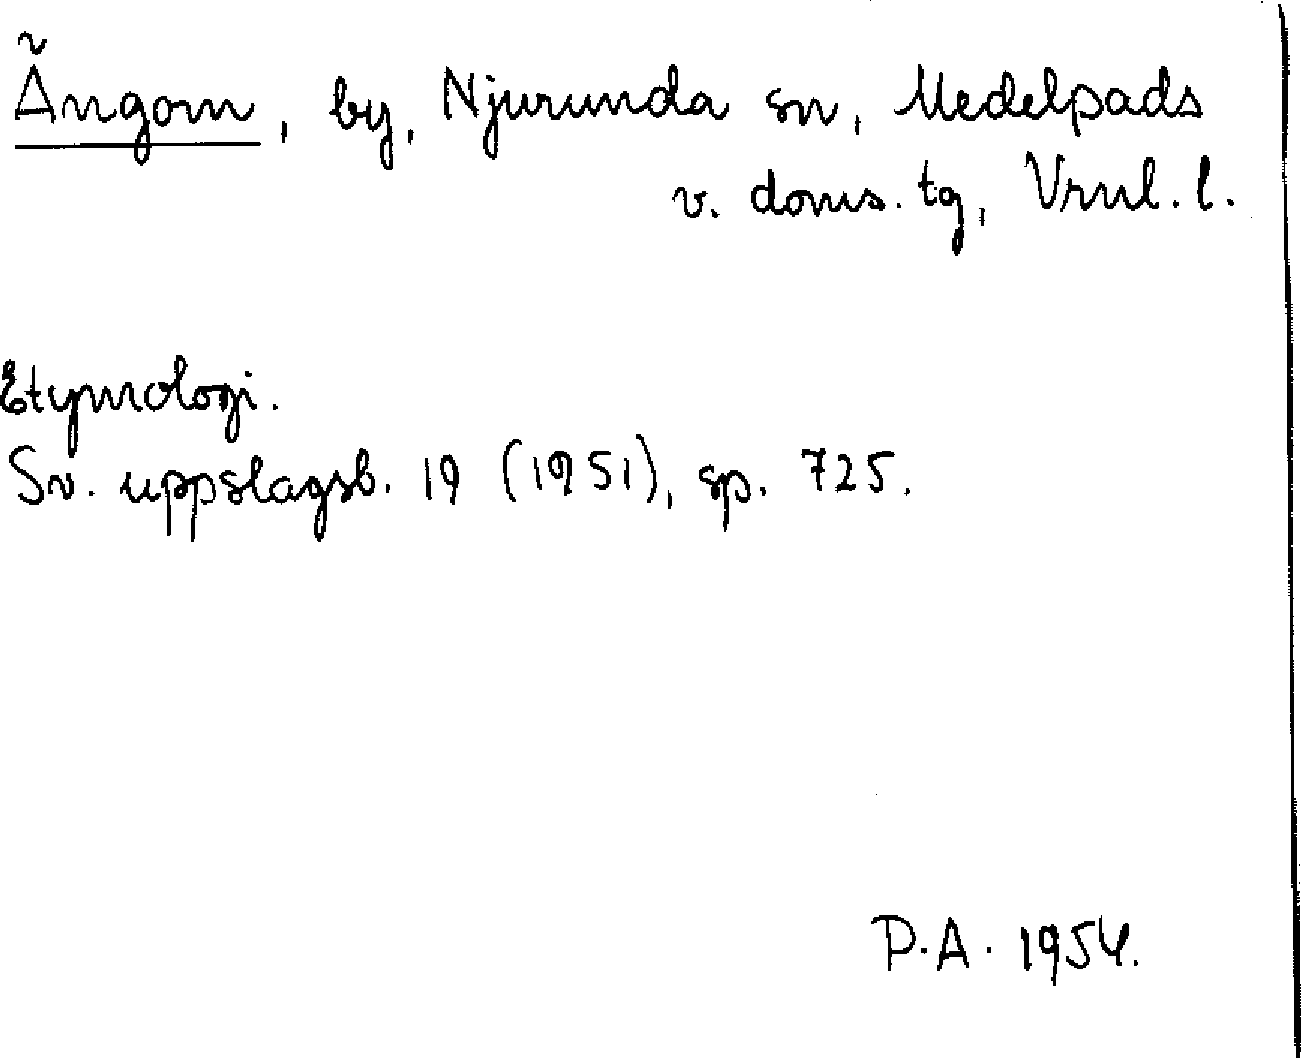 Ängom, by, Njurunda sn, Medelpads
v. doms. tg, Vrnl. l.
Etymologi.
Sv. uppslagsb. 19 (1951), sp. 725.
P.A. 1954.